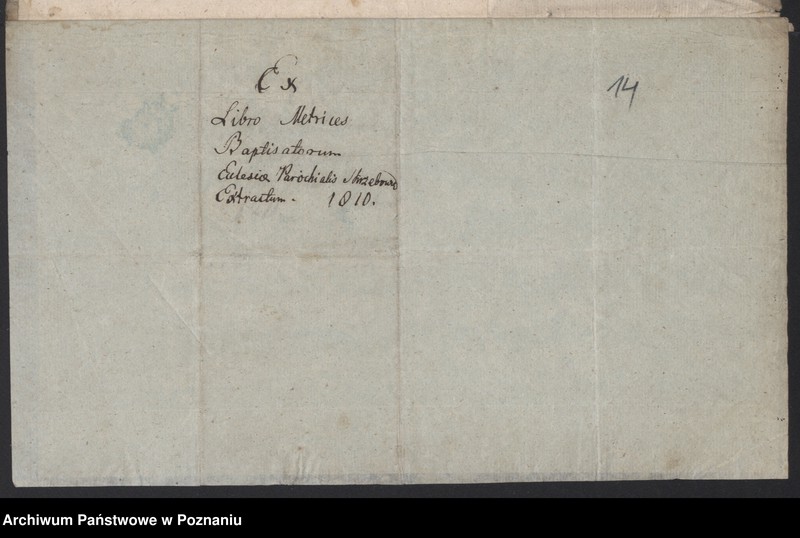 Ex
14
Libro Metrices
Baptisatorum
Eclesiæ Parochialis
Extractum. 1810.
Archiwum Państwowe w Poznaniu